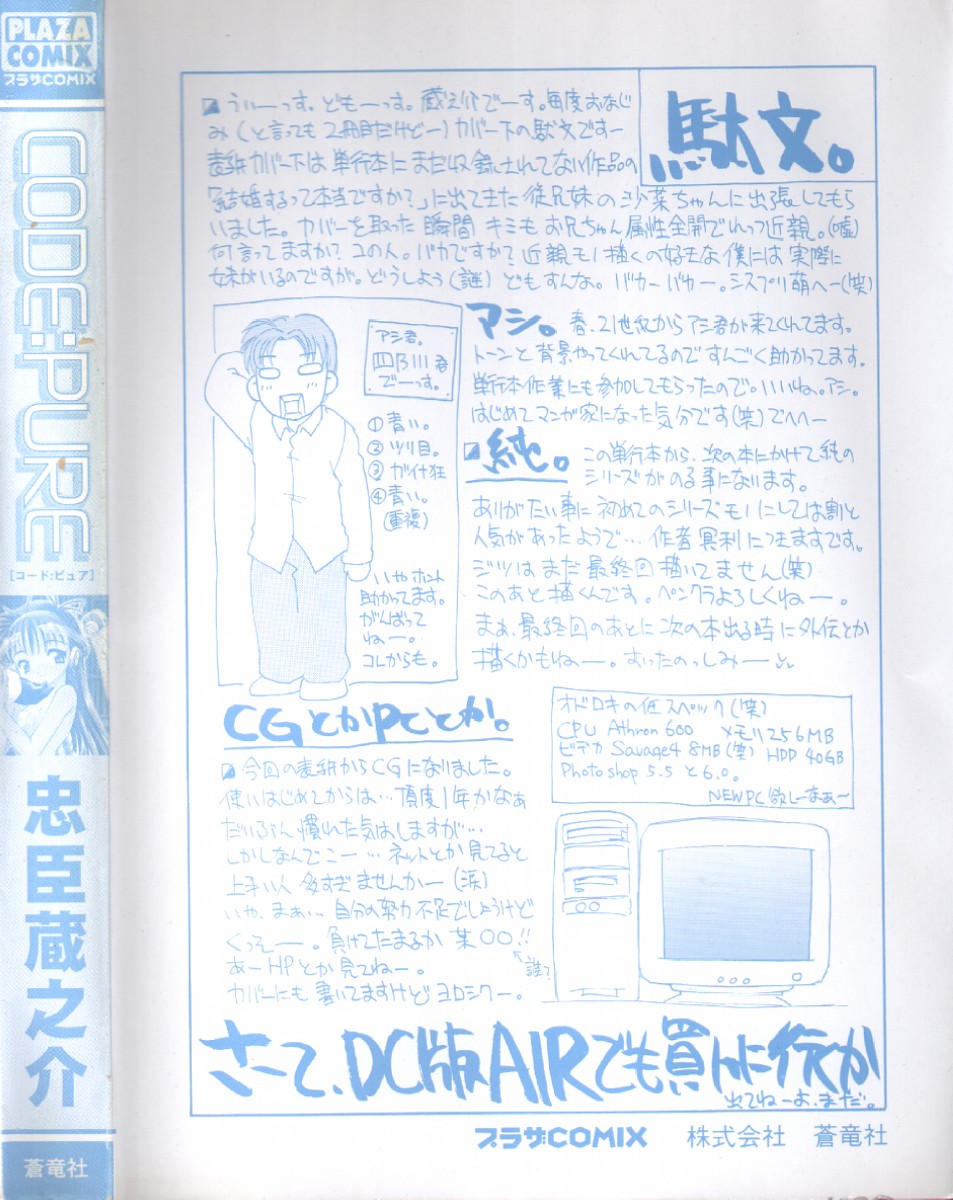 PLAZA
COMIX
プラザCOMIX
CODE:PURE
[コード:ピュア]
忠臣蔵之介
蒼竜社
駄文。
うぃーっす。どもーっす。蔵之介でーす。毎度おなじ
み(と言っても2冊目だけどー)カバー下の駄文ですー
表紙カバー下は単行本にまだ収録されてない作品の
「結婚するって本当ですか?」に出てきた従兄妹の沙菜ちゃんに出張してもら
いました。カバーを取った瞬間キミもお兄ちゃん属性全開でれっつ近親。(嘘)
何言ってますか?この人。バカですか?近親モノ描くの好きな僕には実際に
妹がいるのですが。どうしよう(謎)どもすんな。バカーバカー。シスプリ萌へー(笑)
アシ。
春、21世紀からアシ君が来てくれてます。
トーンと背景やってくれてるのですんごく助かってます。
単行本作業にも参加してもらったので。いいね。アシ。
はじめてマンガ家になった気分です(笑)でへへー
アシ君。
四B川君
でーっす。
①青い。
②ツリ目。
③ガイナ狂
④青い。
(重複)
いやホント
助かってます。
がんばって
ねー。
コレからも。
純。
この単行本から、次の本にかけて純の
シリーズがのる事になります。
ありがたい事に初めてのシリーズモノにしては割と
人気があったようで…作者冥利につきますです。
ジツはまだ最終回描いてません(笑)
このあと描くんです。ペンクラよろしくねー。
まぁ、最終回のあとに次の本出る時に外伝とか
描くかもねー。おったのっしみー
CGとかPCとか。
今回の表紙からCGになりました。
使いはじめてからは…頂度1年かなぁ
だいぶん慣れた気はしますが…
しかしなんでこー…ネットとか見てると
上手い人多すぎませんかー(涙)
いや、まぁ…自分の努力不足でしょうけど
くっそー。負けてたまるか某○○!!
誰?
あーHPとか見てねー。
カバーにも書いてますけどヨロシクー。
オドロキの低スペック(笑)
CPU Athron 600 メモリ256MB
ビデカ Savage4 8MB(笑) HDD 40GB
Photoshop 5.5 と6.0。
NEW PC 欲しーなぁ~
さーて、DC版AIRでも買いに行くか
出てねーよ、まだ。
プラザCOMIX 株式会社 蒼竜社